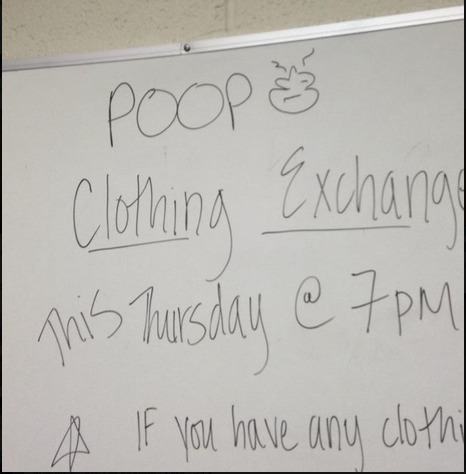 POOP
Clothing Exchange
This Thursday @ 7pm
IF you have any clothi